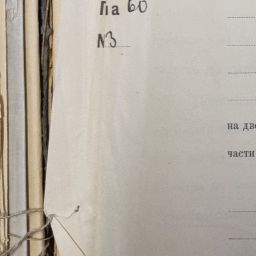 Па 60
N3
на дво
части